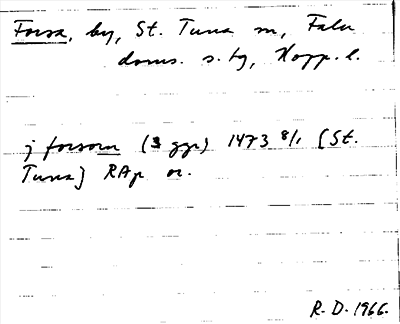 Forsa, by, St. Tuna sn, Falu
doms. s.tg, Kopp. l.
j forsom (3 ggr) 1473 8/1 [St.
Tuna] RAp or.
R. D. 1966.